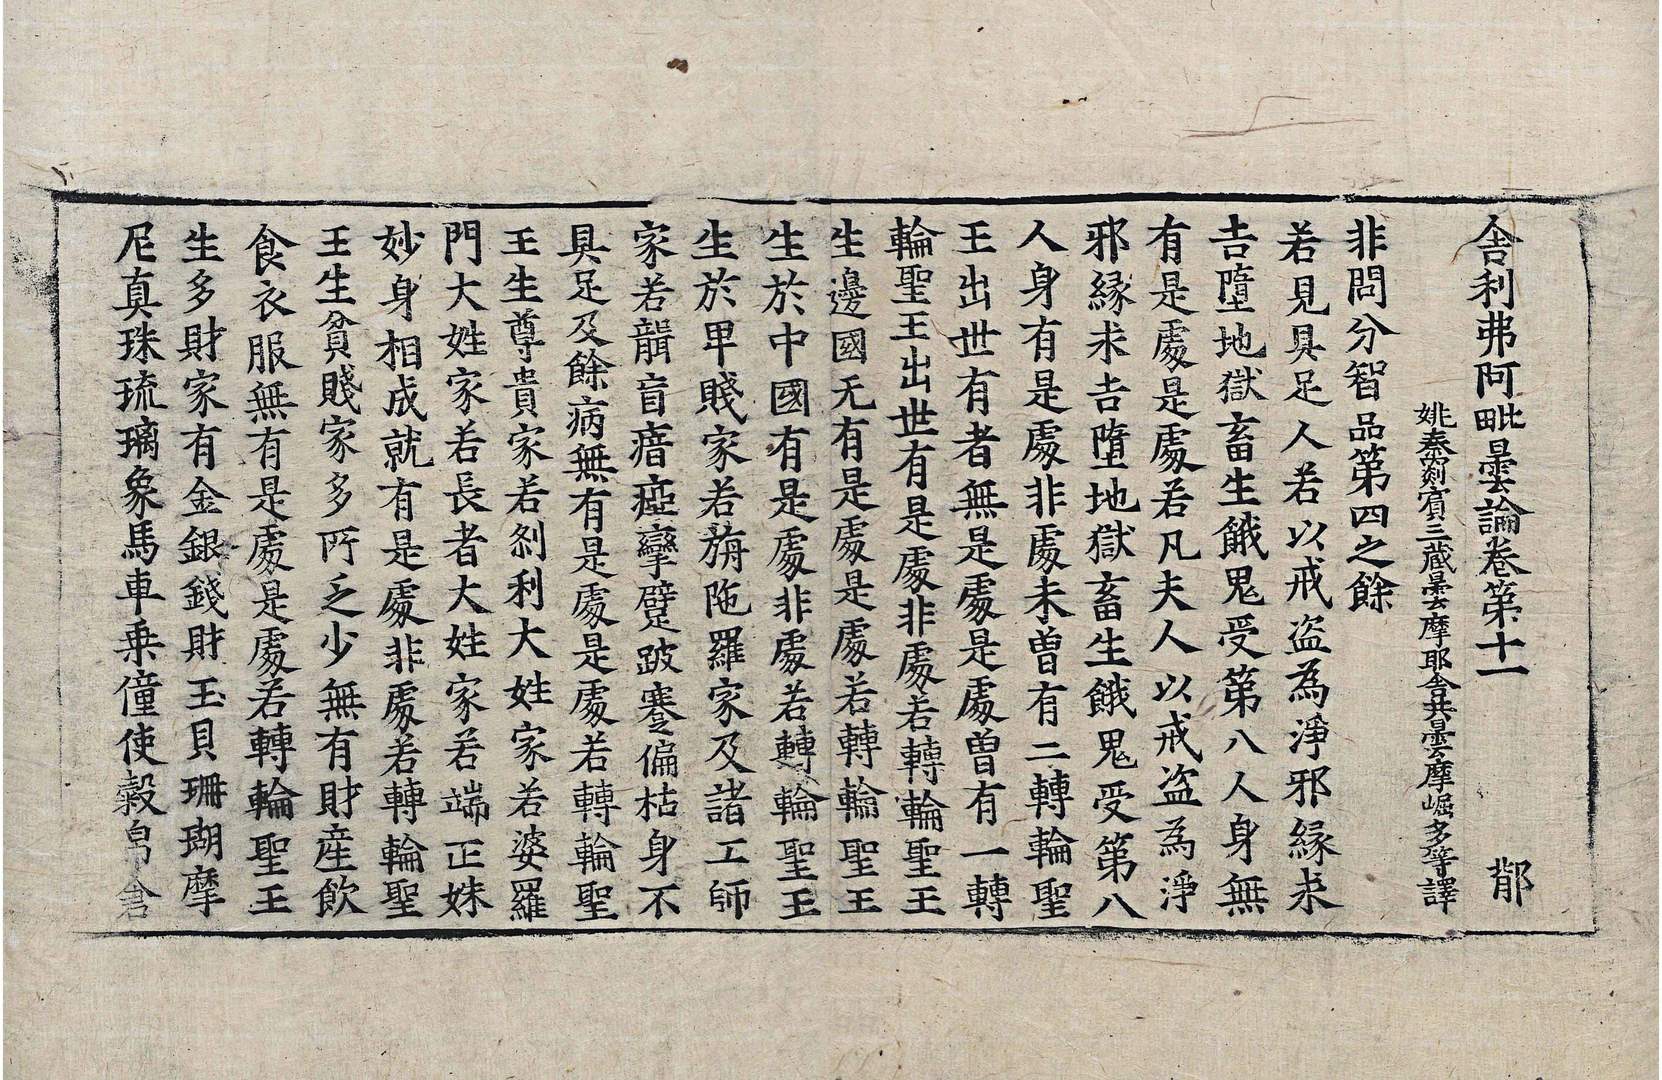 舍利弗阿毗曇論卷第十一 鄁
姚秦罽賓三藏曇摩耶舍共曇摩崛多等譯
非問分智品第四之餘
若見具足人若以戒盜為淨邪緣求
吉墮地獄畜生餓鬼受第八人身無
有是處是處若凡夫人以戒盜為淨
邪緣求吉墮地獄畜生餓鬼受第八
人身有是處非處未曾有二轉輪聖
王出世有者無是處是處曾有一轉
輪聖王出世有是處非處若轉輪聖王
生邊國无有是處是處若轉輪聖王
生於中國有是處非處若轉輪聖王
生於甲賤家若旃陁羅家及諸工師
家若聾盲瘖瘂攣躄跛蹇偏枯身不
具足及餘病無有是處是處若轉輪聖
王生尊貴家若剎利大姓家若婆羅
門大姓家若長者大姓家若端正姝
妙身相成就有是處非處若轉輪聖
王生貧賤家多所乏少無有財產飲
食衣服無有是處是處若轉輪聖王
生多財家有金銀錢財玉貝珊瑚摩
尼真珠琉璃象馬車乘僮使穀帛倉